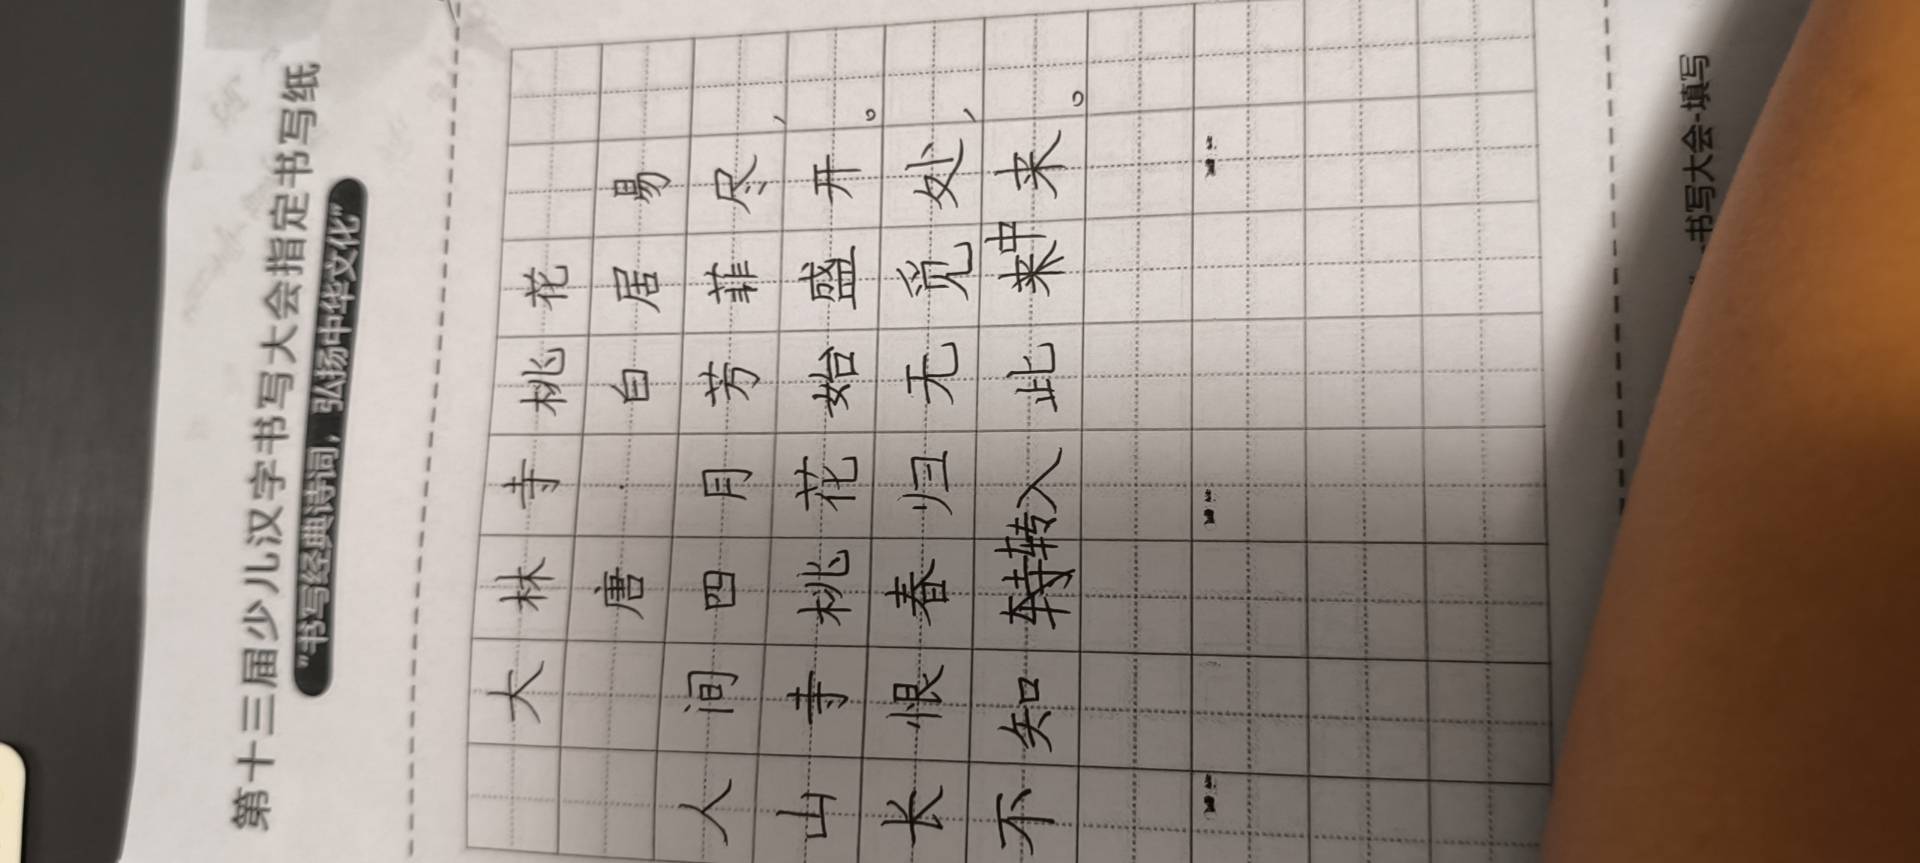 第十三届少儿汉字书写大会指定书写纸
“书写经典诗词，弘扬中华文化”
大林寺桃花
唐·白居易
人间四月芳菲尽，
山寺桃花始盛开。
长恨春归无觅处，
不知转入此中来。
书写大会·填写